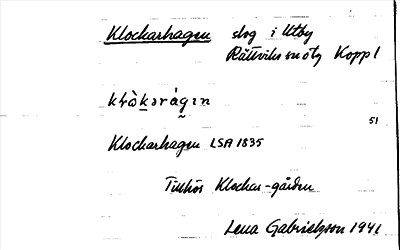 Klockarhagen skog i Utby
Rättviks sn öty Koppl
51
Klockarhagen LSA 1835
Tillhör Klockar-gården
Lena Gabrielsson 1941